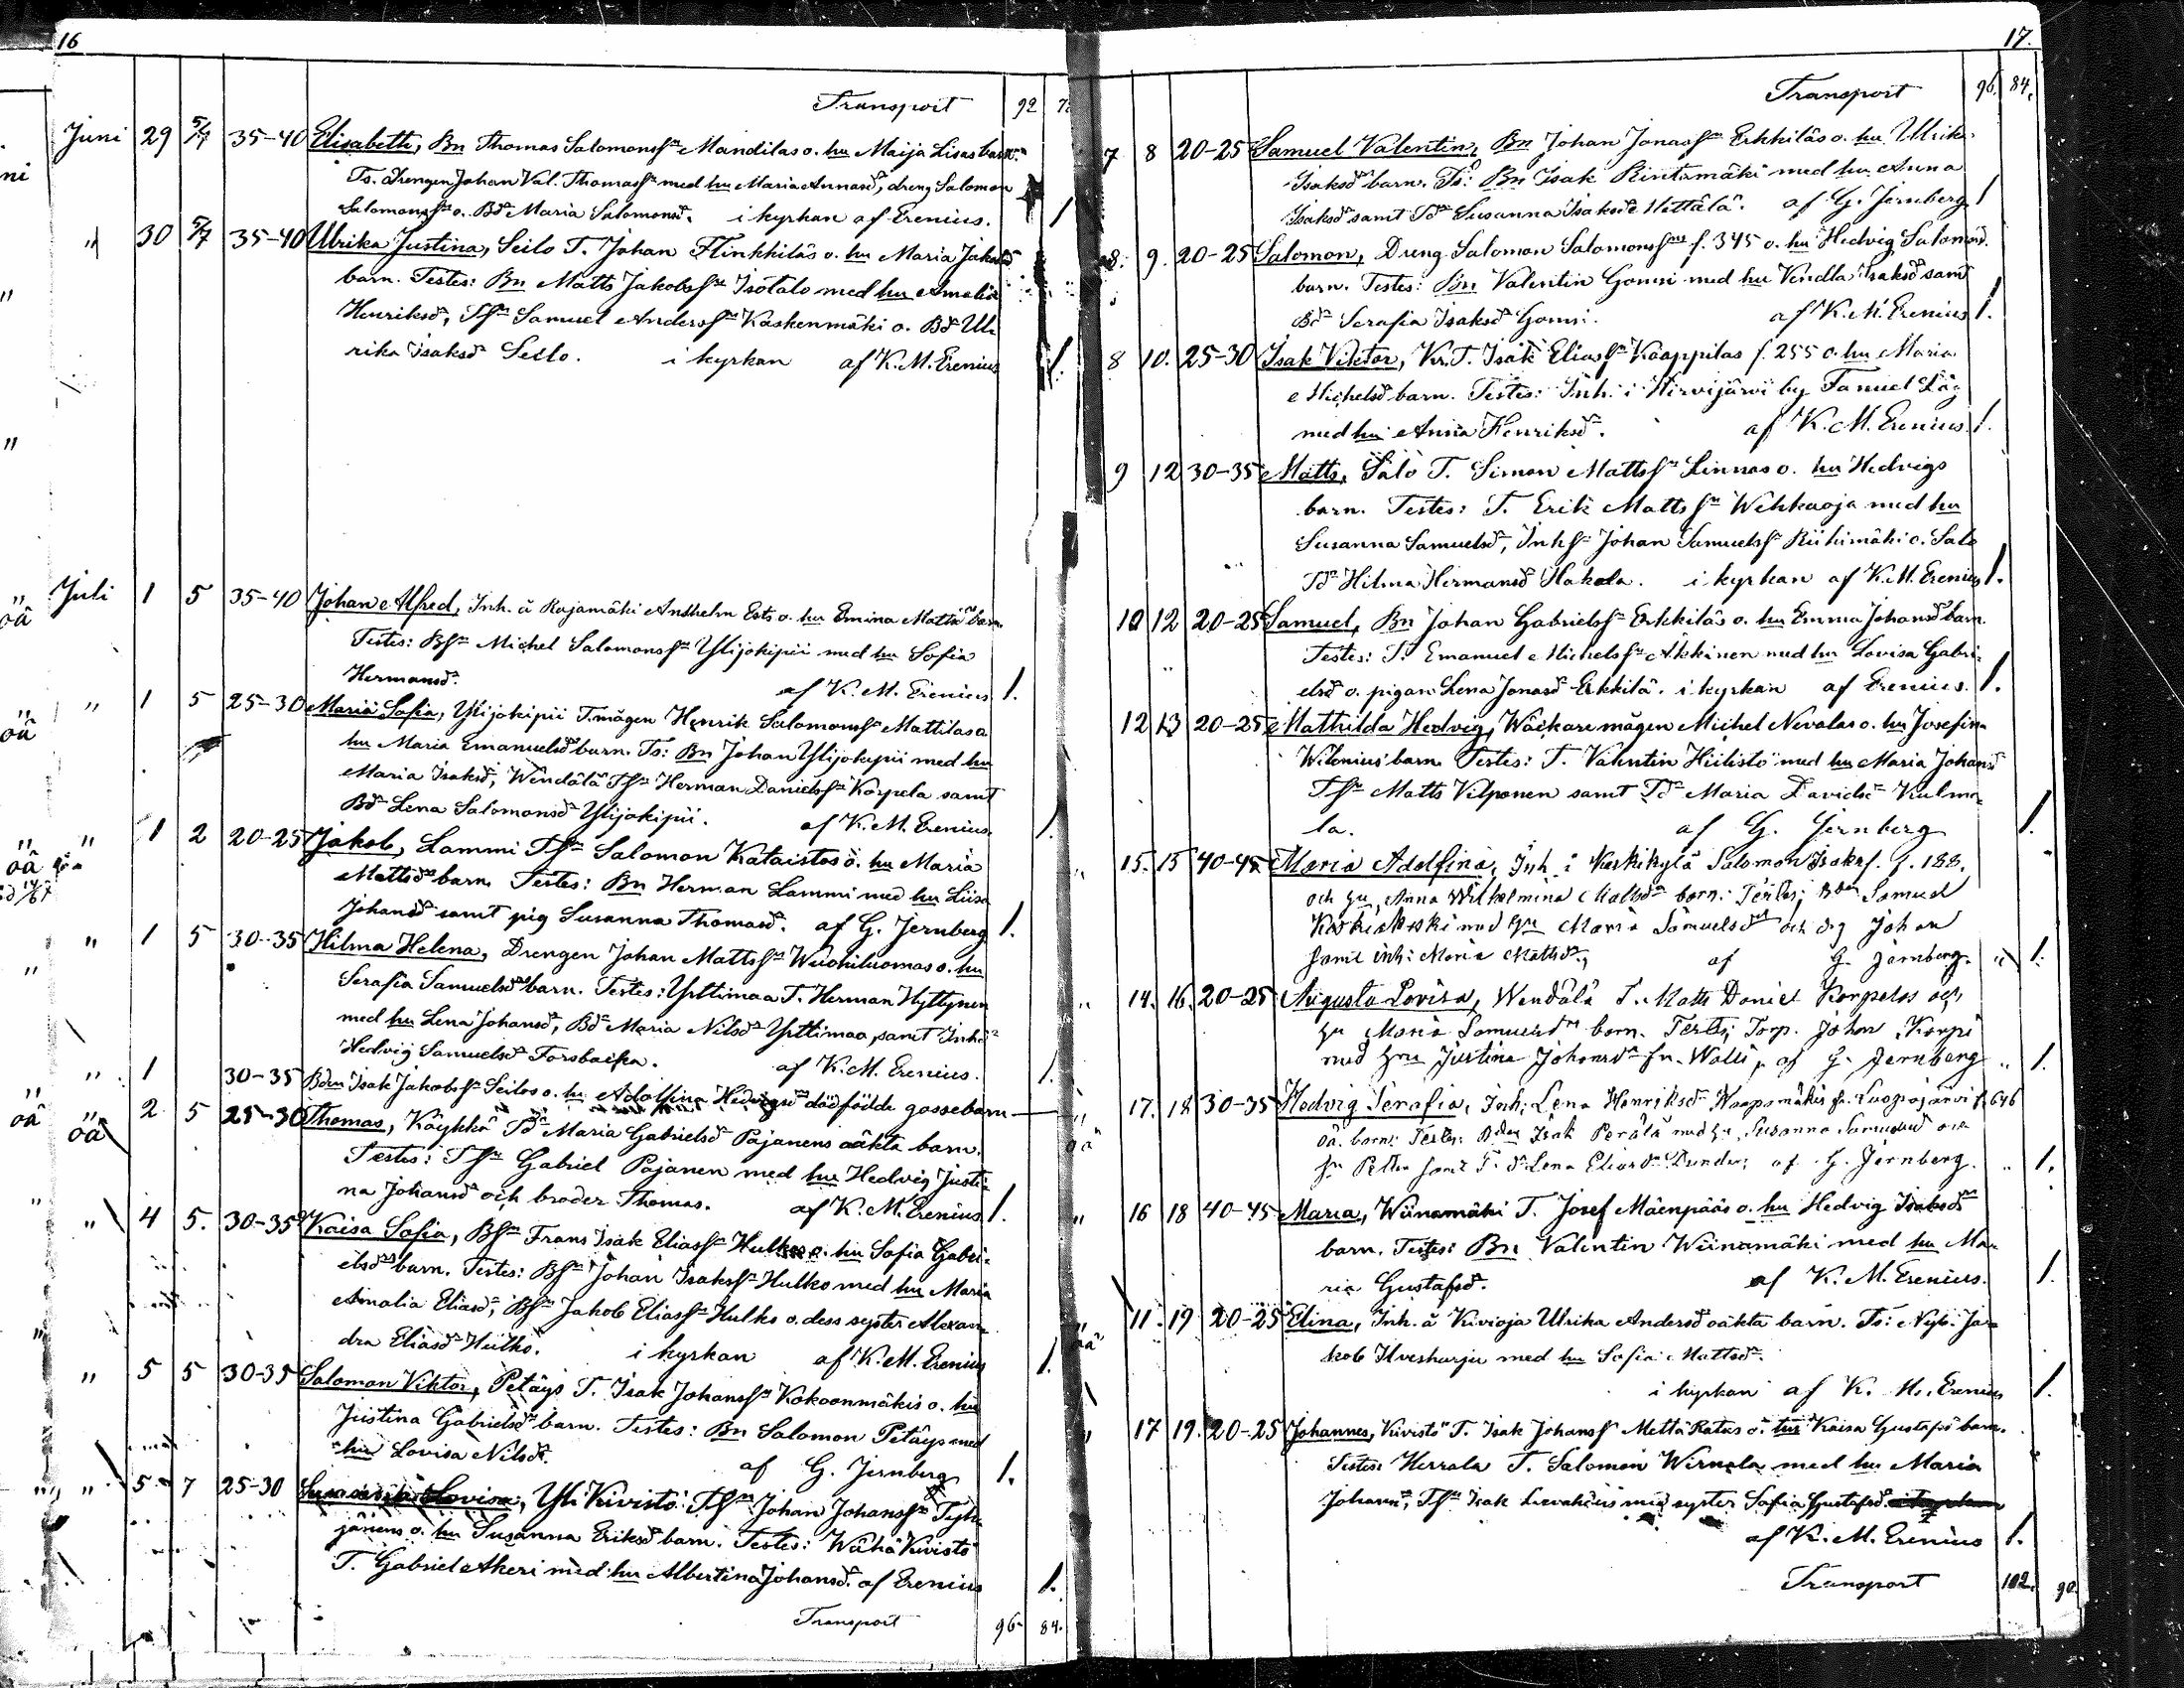 16
Transport 92
Juni 29 5/7 35-40 Elisabeth, Bn Thomas Salomonsſn Mandilas o. hu Maija Lisas barn.
Ts. drengen Johan Val. Thomasſn med hu Maria Annasdr, dreng Salomon
Salomonsſn o. Bdr Maria Salomonsdr. i kyrkan af Erenius. 1
" 30 5/7 35-40 Ulrika Justina, Seilo T. Johan Flinkkiläs o. hu Maria Jakobsd
barn. Testes: Bn Matts Jakobsſn Isotalo med hu Amalia
Henriksdr, Tſn Samuel Andersſn Kaskenmäki o. Bdr Ul-
rika Isaksdr Seilo. i kyrkan af K. M. Erenius 1.
Juli 1 5 35-40 Johan Alfred, Inh. å Rajamäki Andhelm Ests o. hu Emina Mattsdrs barn.
Testes: Bſn Michel Salomonsſn Ylijokipii med hu Sofia
Hermansdr. af K. M. Erenius 1.
" 1 5 25-30 Maria Sofia, Ylijokipii T.mågen Henrik Salomonsſn Mattilas o.
hu Maria Emanuelsdrs barn. Ts: Bn Johan Ylijokipii med hu
Maria Isaksdr, Wendälä Tſn Herman Danielsſn Korpela samt
Bdr Lena Salomonsdr Ylijokipii. af K. M. Erenius. 1.
" 1 2 20-25 Jakob, Lammi Tſn Salomon Kataistos o. hu Maria
Mattsdrs barn. Testes: Bn Herman Lammi med hu Liisa
Johansdr samt pig Susanna Thomasdr. af G. Jernberg 1.
" 1 5 30-35 Hilma Helena, Drengen Johan Mattsſn Wuohiluomas o. hu
Serafia Samuelsdrs barn. Testes: Yrttimaa T. Herman Hyttynen
med hu Lena Johansdr, Bdr Maria Nilsdr Yrttimaa, samt Inhdr
Hedvig Samuelsdr Forsbacka. af K. M. Erenius. 1.
" 1 30-35 Bdn Isak Jakobsſn Seilos o. hu Adolfina Hedvigsdrs dödfödde gossebarn
oä 2 5 25-30 Thomas, Käykkä Pdr Maria Gabrielsdr Pajanens oäkta barn.
Testes: Tſn Gabriel Pajanen med hu Hedvig Justi-
na Johansdr och broder Thomas. af K. M. Erenius 1.
" 4 5. 30-35 Kaisa Sofia, Bſn Frans Isak Eliasſn Hulkos o. hu Sofia Gabri-
elsdrs barn. Testes: Bſn Johan Isaksſn Hulko med hu Maria
Amalia Eliasdr, Bſn Jakob Eliasſn Hulko o. dess syster Alexan-
dra Eliasdr Hulko. i kyrkan af K. M. Erenius 1.
" 5 5 30-35 Salomon Viktor, Petäys T. Isak Johansſn Kokoonmäkis o. hu
Justina Gabrielsdrs barn. Testes: Bn Salomon Petäys med
hu Lovisa Nilsdr. af G. Jernberg 1.
" 5 7 25-30 Lovisa, Yli Kivistö Tſn Johan Johansſn
järvens o. hu Susanna Eriksdr barn. Testes: Wähä Kivistö
T. Gabriel Akeri med hu Albertina Johansdr. af Erenius 1.
Transport 96. 84.
17.
Transport 96. 84.
7 8 20-25 Samuel Valentin, Bn Johan Jonasſn Erkkiläs o. hu Ulrika
Isaksdrs barn. Ts: Bn Isak Rintamäki med hu Anna
Isaksdr samt Tdr Susanna Isaksdr Hettälä. af G. Jernberg 1
8. 9. 20-25 Salomon, Dreng Salomon Salomonsſns f. 345 o. hu Hedvig Salomonsd.
barn. Testes: Bn Valentin Gomsi med hu Vendla Isaksdr samt
Bdr Serafia Isaksdr Gomsi. af K. M. Erenius 1.
8 10. 25-30 Isak Viktor, Kr. T. Isak Eliasſn Kaappilas f. 255 o. hu Maria
Michelsdr barn. Testes: Inh. i Hirvijärvi by Fanuel Låg
med hu Anna Henriksdr. af K. M. Erenius. 1.
9 12 30-35 Matts, Salo T. Simon Mattsſn Linnas o. hu Hedvigs
barn. Testes: T. Erik Mattsſn Wehkaoja med hu
Susanna Samuelsdr, Inhſn Johan Samuelsſn Riihimäki o. Salo
Tdr Hilma Hermansdr Hakola. i kyrkan af K. M. Erenius 1.
10 12 20-25 Samuel, Bn Johan Gabrielsſn Erkkiläs o. hu Emma Johansdrs barn.
Testes: T. Emanuel Michelsſn Akkinen med hu Lovisa Gabri-
elsdr o. pigan Lena Jonasdr Erkkilä. i kyrkan af Erenius. 1.
12 13 20-25 Mathilda Hedvig, Wäckare mågen Michel Nevalas o. hu Josefina
Wilenius' barn. Testes: T. Valentin Hiilistö med hu Maria Johansd
Tſn Matts Vilponen samt Tdr Maria Davidsdr Kulma-
la. af G. Jernberg 1.
15. 15 40-45 Maria Adolfina, Inh. i Keskikylä Salomon Isaksſ. f. 188.
och hu, Anna Wilhelmina Mattsdr barn: Testes; Bdn Samuel
Koskiakoski med hu Maria Samuelsdr och drg Johan
samt inh: Maria Mattsdr, af G. Jernberg. 1.
14. 16. 20-25 Augusta Lovisa, Wendälä T. Matts Daniel Korpelas och
hu Maria Samuelsdrs barn. Testes; Torp. Johan Korpi
med hu Justina Johansdr fr. Walli, af G. Jernberg 1.
17. 18 30-35 Hedvig Serafia, Inh: Lena Henriksdr Haapamäkis fr. Luopajärvi f. 646
oä. barn: Testes: Bdn Isak Perälä med hu Susanna Samuelsd och
Petter samt T. dr Lena Eliasdr Dunder; af G. Jernberg. 1.
16 18 40-45 Maria, Wiinamäki T. Josef Mäenpääs o. hu Hedvig Isaksdrs
barn. Testes: Bn Valentin Wiinamäki med hu Ma-
ria Gustafsdr. af K. M. Erenius. 1.
11. 19 20-25 Elina, Inh. å Kivioja Ulrika Andersdr oäkta barn. Ts: Nyb. Ja-
kob Ilvesharju med hu Sofia Mattsdr.
i kyrkan af K. M. Erenius 1.
17 19. 20-25 Johannes, Kivistö T. Isak Johansſ Mettä Ratas o. hu Kaisa Gustafsd barn.
Testes: Herrala T. Salomon Wirnala med hu Maria
Johansdr, Tſn Isak med syster Sofia Gustafsd.
af K. M. Erenius 1.
Transport 102. 90.